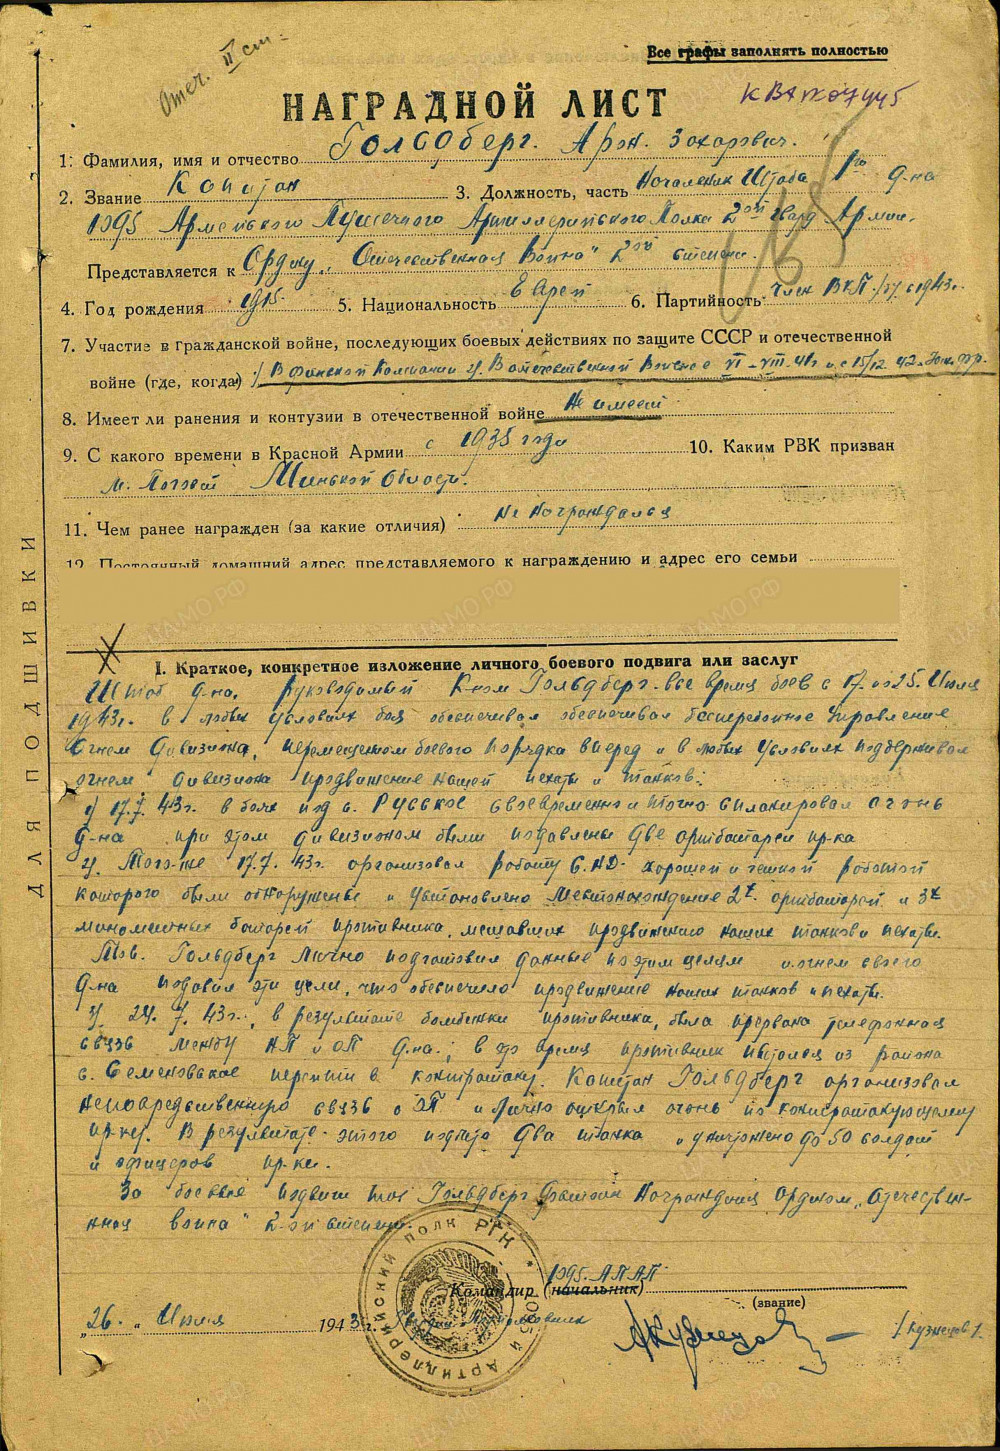 Отеч. II ст.
Все графы заполнять полностью
НАГРАДНОЙ ЛИСТ
1. Фамилия, имя и отчество Гольдберг. Арон. Захарович.
2. Звание Капитан 3. Должность, часть Начальник Штаба 1го д-на
1095 Армейского Пушечного Артиллерийского Полка 2ой гвард. Армии.
Представляется к Ордену „Отечественная Война" 2ой степени.
4. Год рождения 1915. 5. Национальность Еврей 6. Партийность член ВКП/б/ с 1943г.
7. Участие в гражданской войне, последующих боевых действиях по защите СССР и отечественной
войне (где, когда) 1/ В финской Компании 2/. В отечественной Войне с VI-VIII-41г и с 15/12 42. Юж. Фр.
8. Имеет ли ранения и контузии в отечественной войне Не имеет
9. С какого времени в Красной Армии с 1935 года 10. Каким РВК призван
м. Логойск Минской области.
11. Чем ранее награжден (за какие отличия) Не награждался
12. Постоянный домашний адрес представляемого к награждению и адрес его семьи
I. Краткое, конкретное изложение личного боевого подвига или заслуг
Штаб д-на, руководимый К-ном Гольдберг все время боев с 17. по 25. Июля
1943г. в любых условиях боя обеспечивал обеспечивал бесперебойное управление
огнем дивизиона, перемещением боевого порядка вперед и в любых условиях поддерживал
огнем дивизиона продвижение нашей пехоты и танков:
1/ 17.7.43г. в боях под с. Русское своевременно и точно спланировал огонь
д-на при этом дивизионом были подавлены две артбатареи пр-ка
2/. Того-же 17.7.43г. организовал работу С.НД. хорошей и четкой работой
которого были обнаружены и установлено местонахождение 2х артбатарей и 3х
минометных батарей противника, мешавших продвижению наших танков и пехоты.
Тов. Гольдберг лично подготовил данные по этим целям и огнем своего
д-на подавил эти цели, что обеспечило продвижение наших танков и пехоты.
3/. 24.7.43г., в результате бомбежки противника, была прервана телефонная
связь между НП и ОП д-на.; в это время противник пытался из района
с. Семеновское перейти в контратаку. Капитан Гольдберг организовал
непосредственную связь с ОП и лично открыл огонь по контратакующему
пр-ку. В результате этого подбито два танка и уничтожено до 50 солдат
и офицеров пр-ка.
За боевые подвиги тов Гольдберг достоин награждения орденом „Отечествен-
ная война" 2-ой степени.
1095. АПАП
Командир (начальник)
(звание)
„26„ Июля 1943г. Гвардии Подполковник
АКузнецов /Кузнецов/.
АРТИЛЛЕРИЙСКИЙ ПОЛК РГК * 1095Й
ДЛЯ ПОДШИВКИ
ЦАМО.РФ